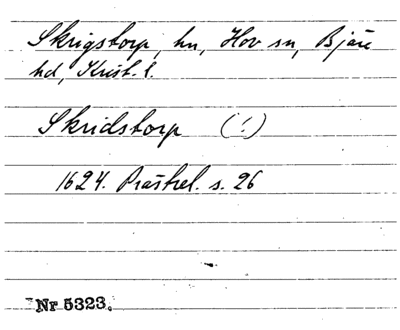 Skrigstorp, hn, Hov sn, Bjäre
hd, Krist. l.
Skridstorp (!)
1624. Prästrel. s. 26
Nr 5323.